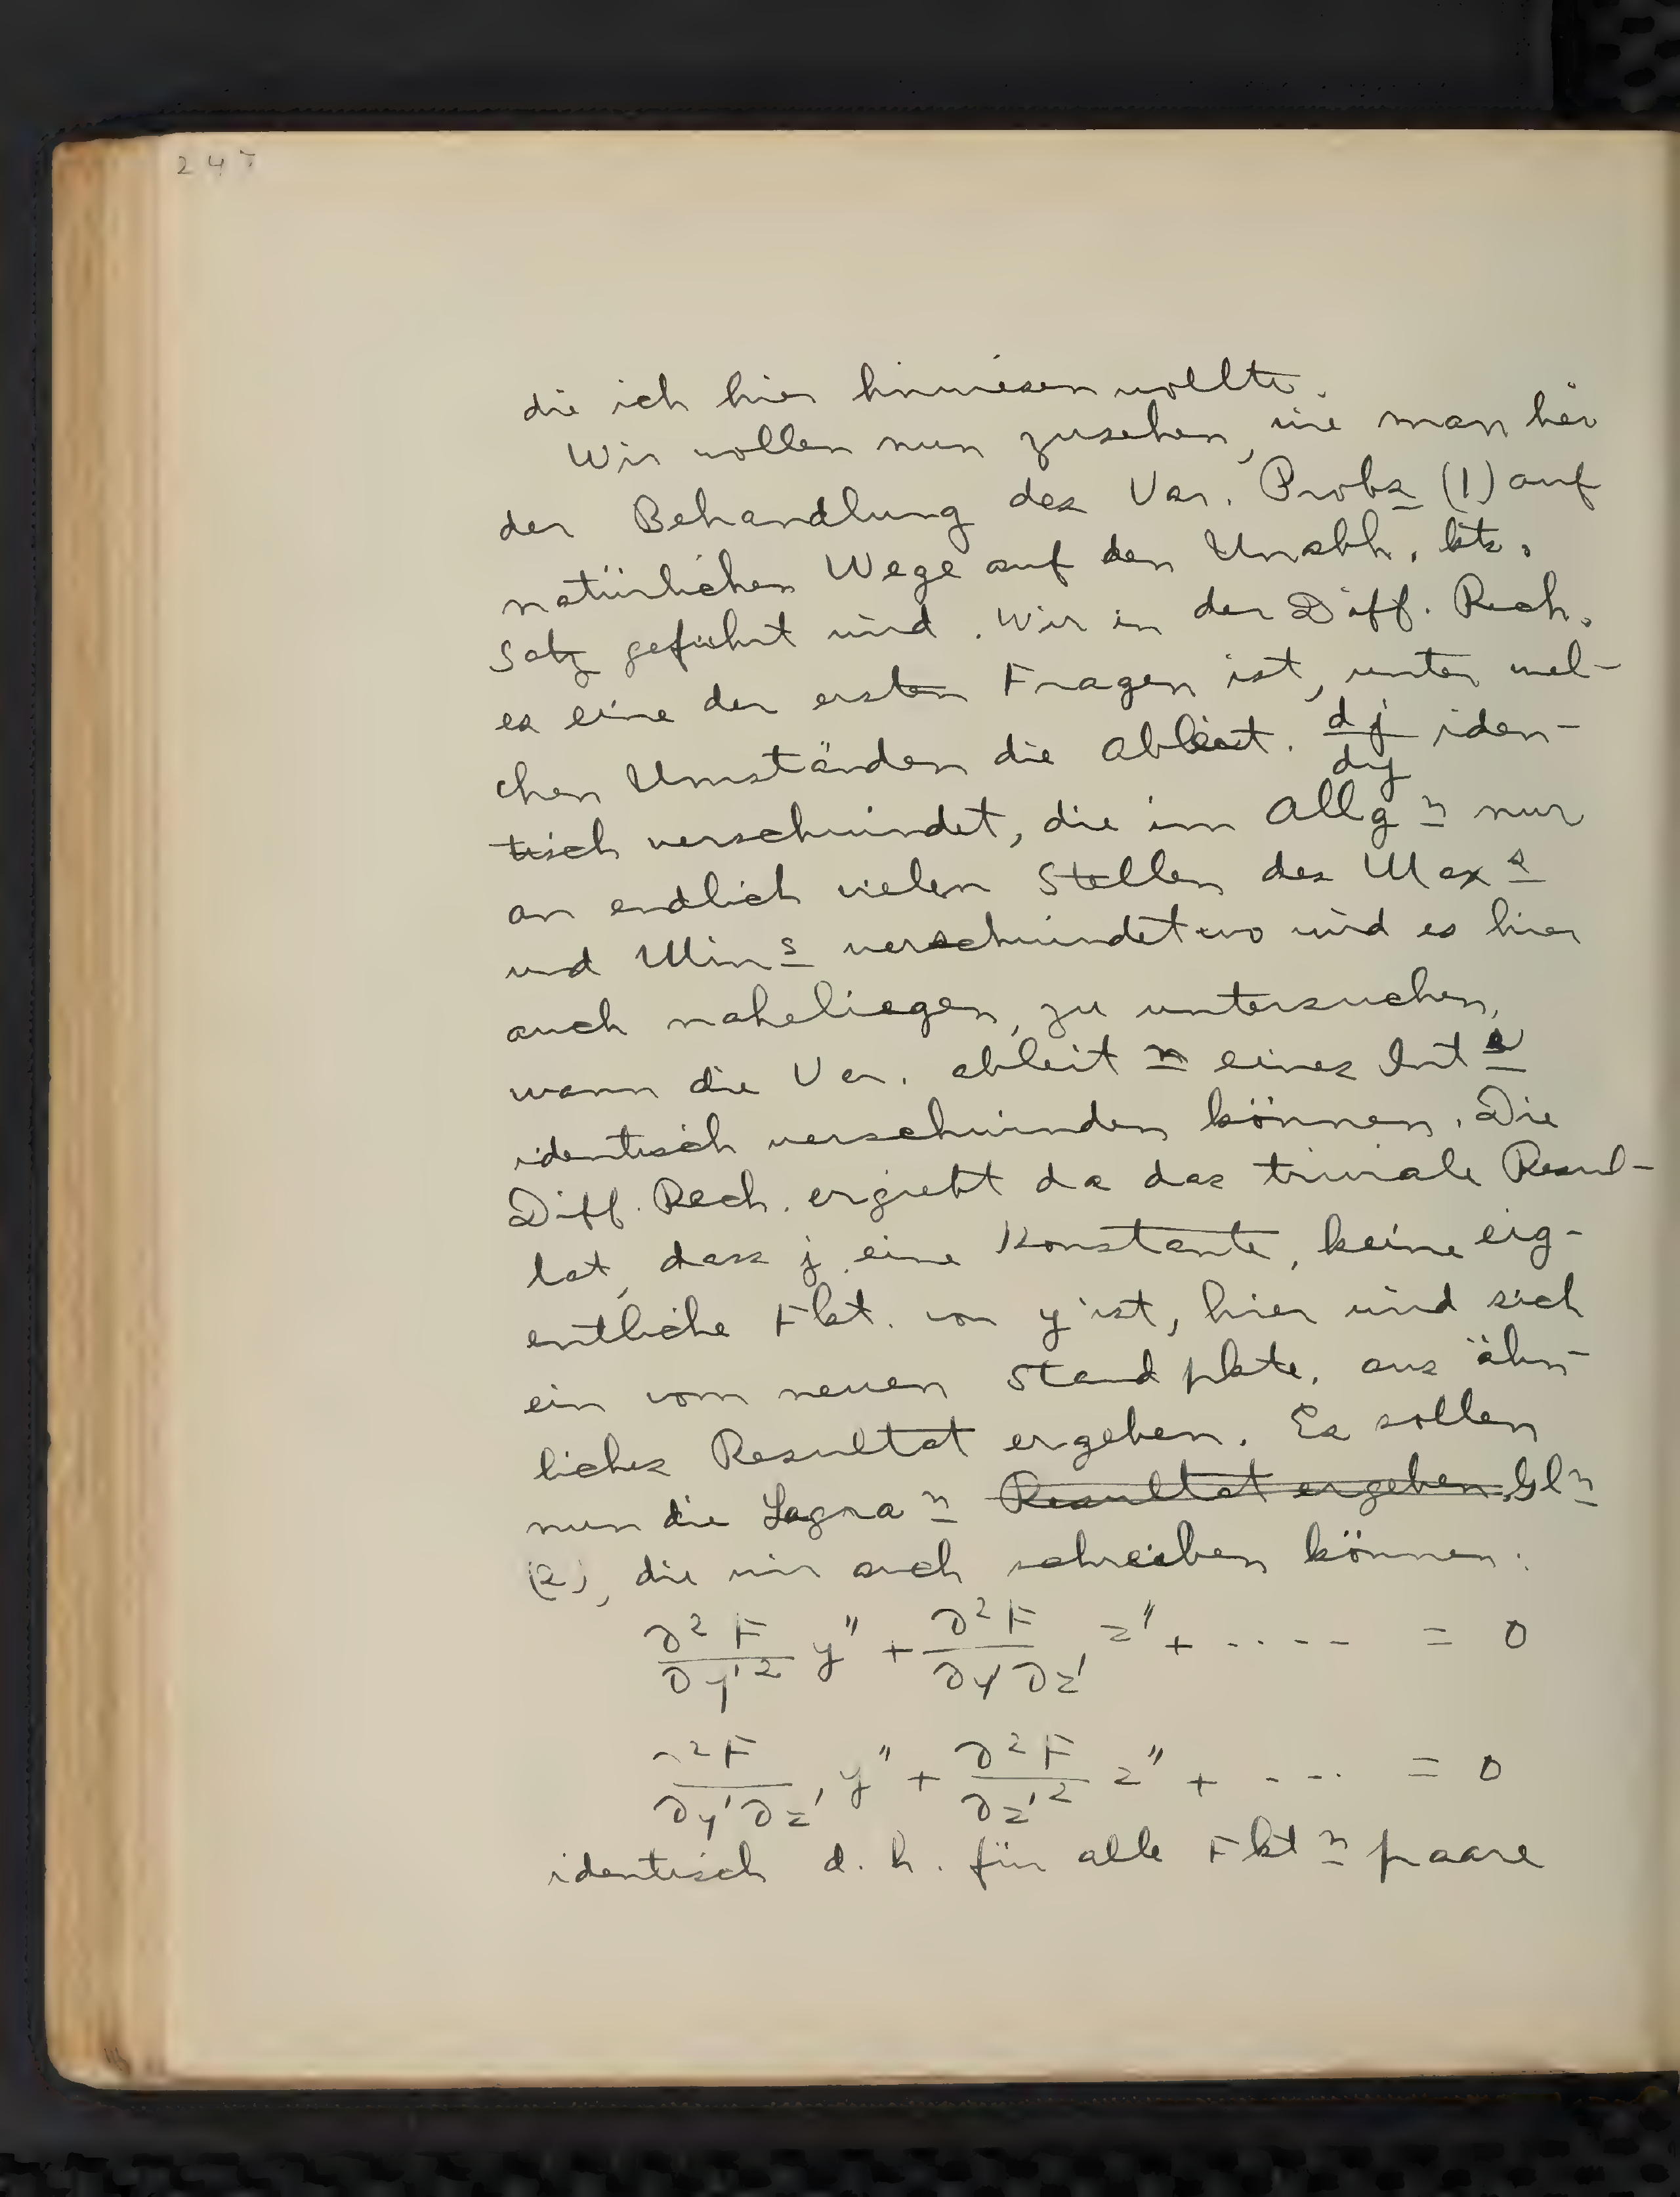 247
die ich hier hinweisen wollte.
Wir wollen nun zusehen, wie man bei
der Behandlung des Var. Probs (1) auf
natürlichen Wege auf den Unabh. kts.
satz geführt wird. Wie in der Diff. Rech.
es eine der ersten Fragen ist, unter wel-
chen Umständen die Ableit. dj/dy iden-
tisch verschwindet, die im Allg n nur
an endlich vielen Stellen des Max s
und Min s verschwindet wo wird es hier
auch naheliegen, zu untersuchen,
wann die Var. ableit n eines Int s
identisch verschwinden können. Die
Diff. Rech. ergiebt da das triviale Resul-
tat, dass j eine Konstante, keine eig-
entliche Fkt. von y ist, hier wird sich
ein vom neuen Standpkte. aus ähn-
liches Resultat ergeben. Es sollen
nun die Lagra n Resultat ergeben. Gl n
(2), die wir auch schreiben können:
∂²F/∂y'² y'' + ∂²F/∂y'∂z' z'' + ..... = 0
∂²F/∂y'∂z' y'' + ∂²F/∂z'² z'' + .... = 0
identisch d. h. für alle Fkt n paare